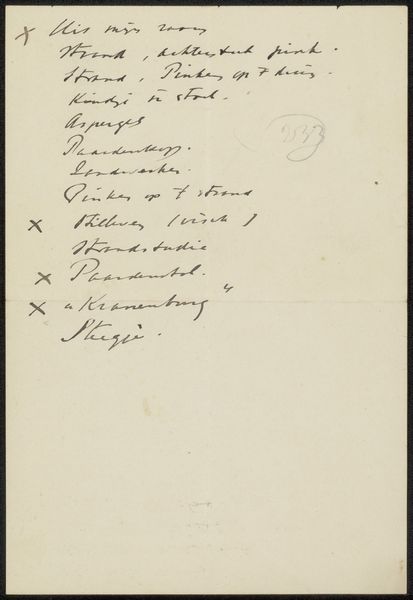 x Uis mijn
Strand, achterstuk pink.
Strand, Pinken op 't duin.
Kindje in stoel.
Asperges
Paardenkopp.
Landwerker.
Pinken op 't strand
x Stilleven (visch)
Strandstudie
x Paardenstal.
x "Kranenburg"
Steegje.
2533